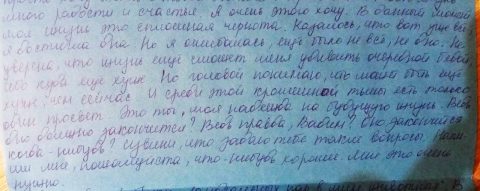 много радости и счастья. Я очень этого хочу. В данный момент
моя жизнь это сплошная чернота. Казалось, что вот уже всё
я достигла дна. Но я ошибалась, ещё было не всё, не дно. Не
уверена, что жизнь ещё сможет меня удивить очередной
куда ещё хуже. Но головой понимаю, что может быть ещё
хуже, чем сейчас. И среди этой кромешной тьмы есть только
один просвет. Это ты, моя надежда на будущую жизнь. Ведь
это должно закончится? Ведь правда, Оно закончится
когда-нибудь? Извини, что задаю тебе такие вопросы. Напи
ши мне, пожалуйста, что-нибудь хорошее. Мне это очень
нужно.